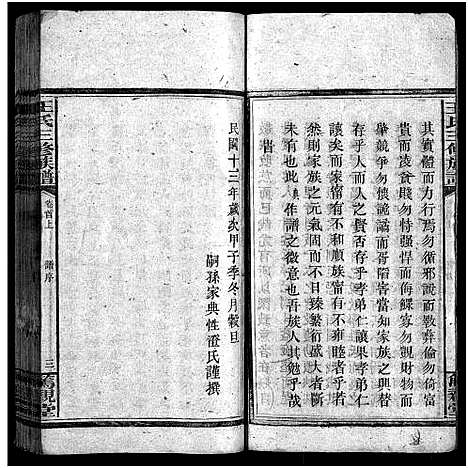 其實體而力行焉勿循邪說而敎彝倫勿倚富
貴而凌貧賤勿特强悍而侮鰥寡勿觀財物而
舉競爭勿懷詭譎而虧陷害當知家族之興替
存乎人而人之賢否存乎孝弟仁讓果孝弟仁
讓矣而家富有不和順族富有不雍睦者乎若
然則家族之元氣固而不日臻繁衍盛大者斷
未有也此眞作譜之微意也吾族人其愼諸
民國十三年歲次甲子季冬月穀旦
嗣孫家典性澄氏謹撰
王氏三修族譜
卷首上
譜序
三
王氏三修族譜